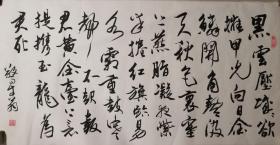 黑雲壓城城欲
摧甲光向日金
鱗開角聲滿
天秋色裏塞
上燕脂凝夜紫
半捲紅旗臨易
水霜重鼓寒
聲不起報
君黃金臺上意
提攜玉龍為
君死